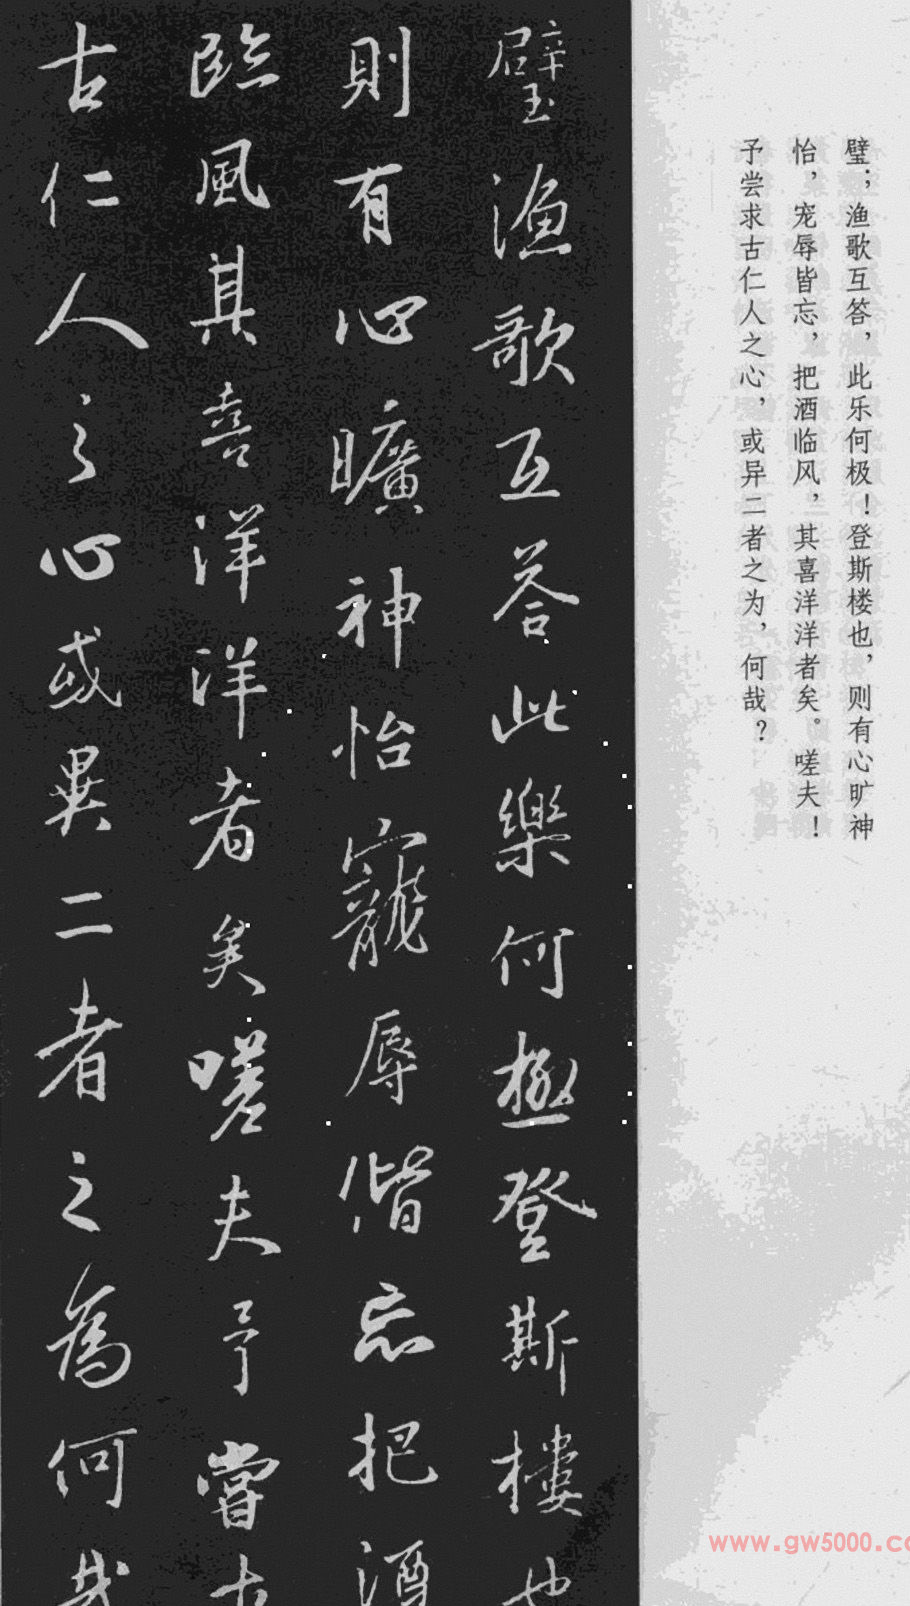 璧；渔歌互答，此乐何极！登斯楼也，则有心旷神
怡，宠辱皆忘，把酒临风，其喜洋洋者矣。嗟夫！
予尝求古仁人之心，或异二者之为，何哉？
璧漁歌互荅此樂何極登斯樓也
則有心曠神怡寵辱偕忘把酒
臨風其喜洋洋者矣嗟夫予嘗
古仁人之心或異二者之為何哉
www.gw5000.co